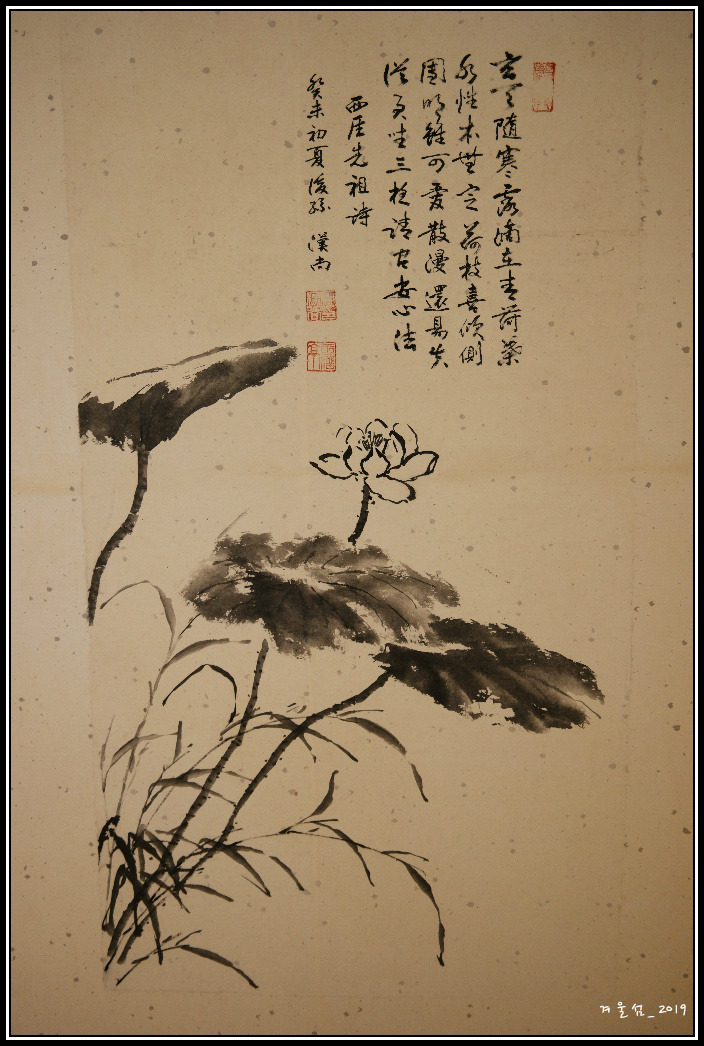 玄天隨寒露滴在青荷葉
水性本無定荷枝喜傾側
團明雖可愛散漫還易失
從君坐三夜請問安心法
西厓先祖詩
癸未初夏後孫 漢尚
겨울섬_2019